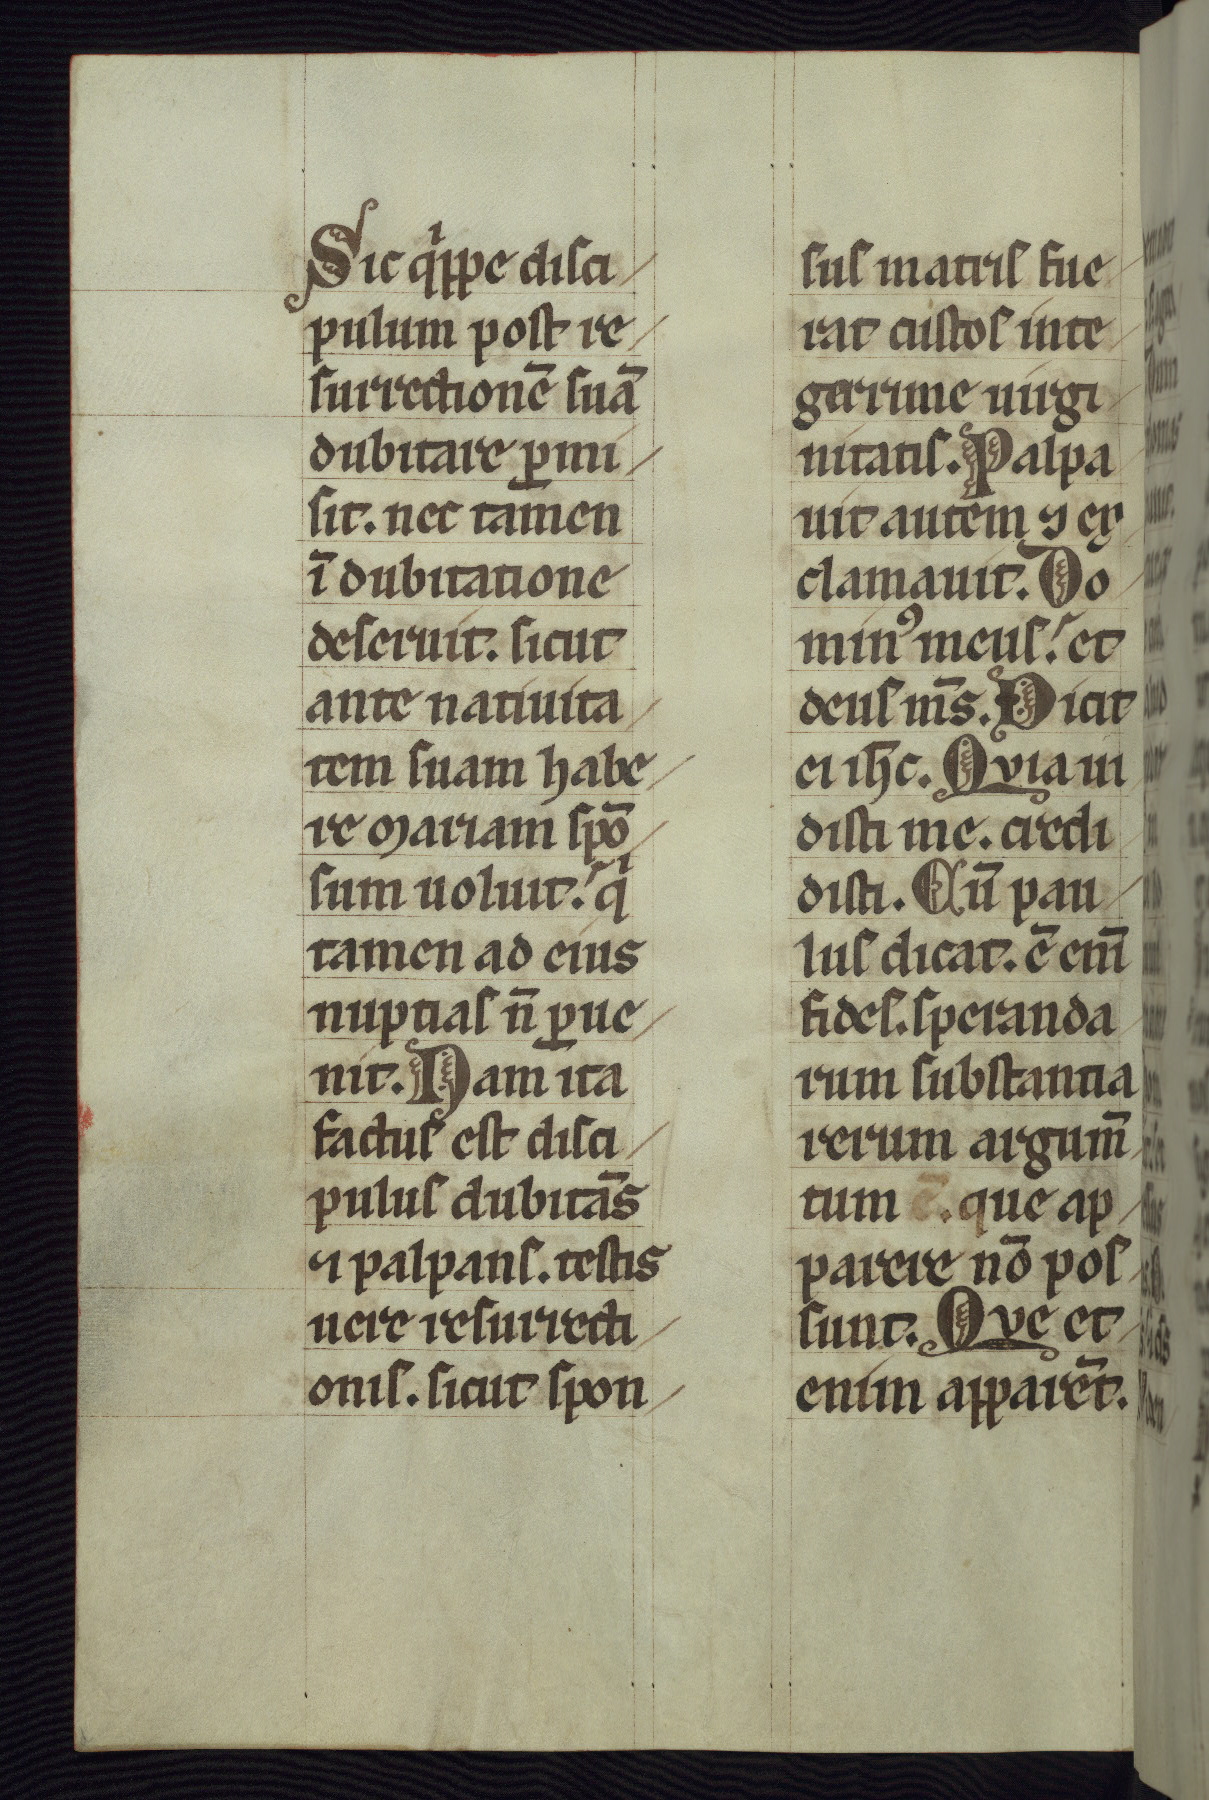 Sic qͥppe disci
pulum post re
surrectionē suā
dubitare ꝑmi
sit. nec tamen
ī dubitatione
deseruit. sicut
ante natiuita
tem suam habe
re Mariam spō
sum uoluit. qͥ
tamen ad eius
nuptias n̄ ꝑue
nit. Nam ita
factus est disci
pulus dubitās
⁊ palpans. testis
uere resurrecti
onis. sicut spon
sus matris fue
rat custos inte
gerrime uirgi
nitatis. Palpa
uit autem ⁊ ex
clamauit. Do
minꝰ meus. et
deus m̄s. Dicit
ei ih̄c. Quia ui
disti me. credi
disti. Cū pau
lus dicat. ē eni̅
fides. speranda
rum substantia
rerum argum̄
tum ē. que ap
parere nō pos
sunt. Que et
enim apparēt.